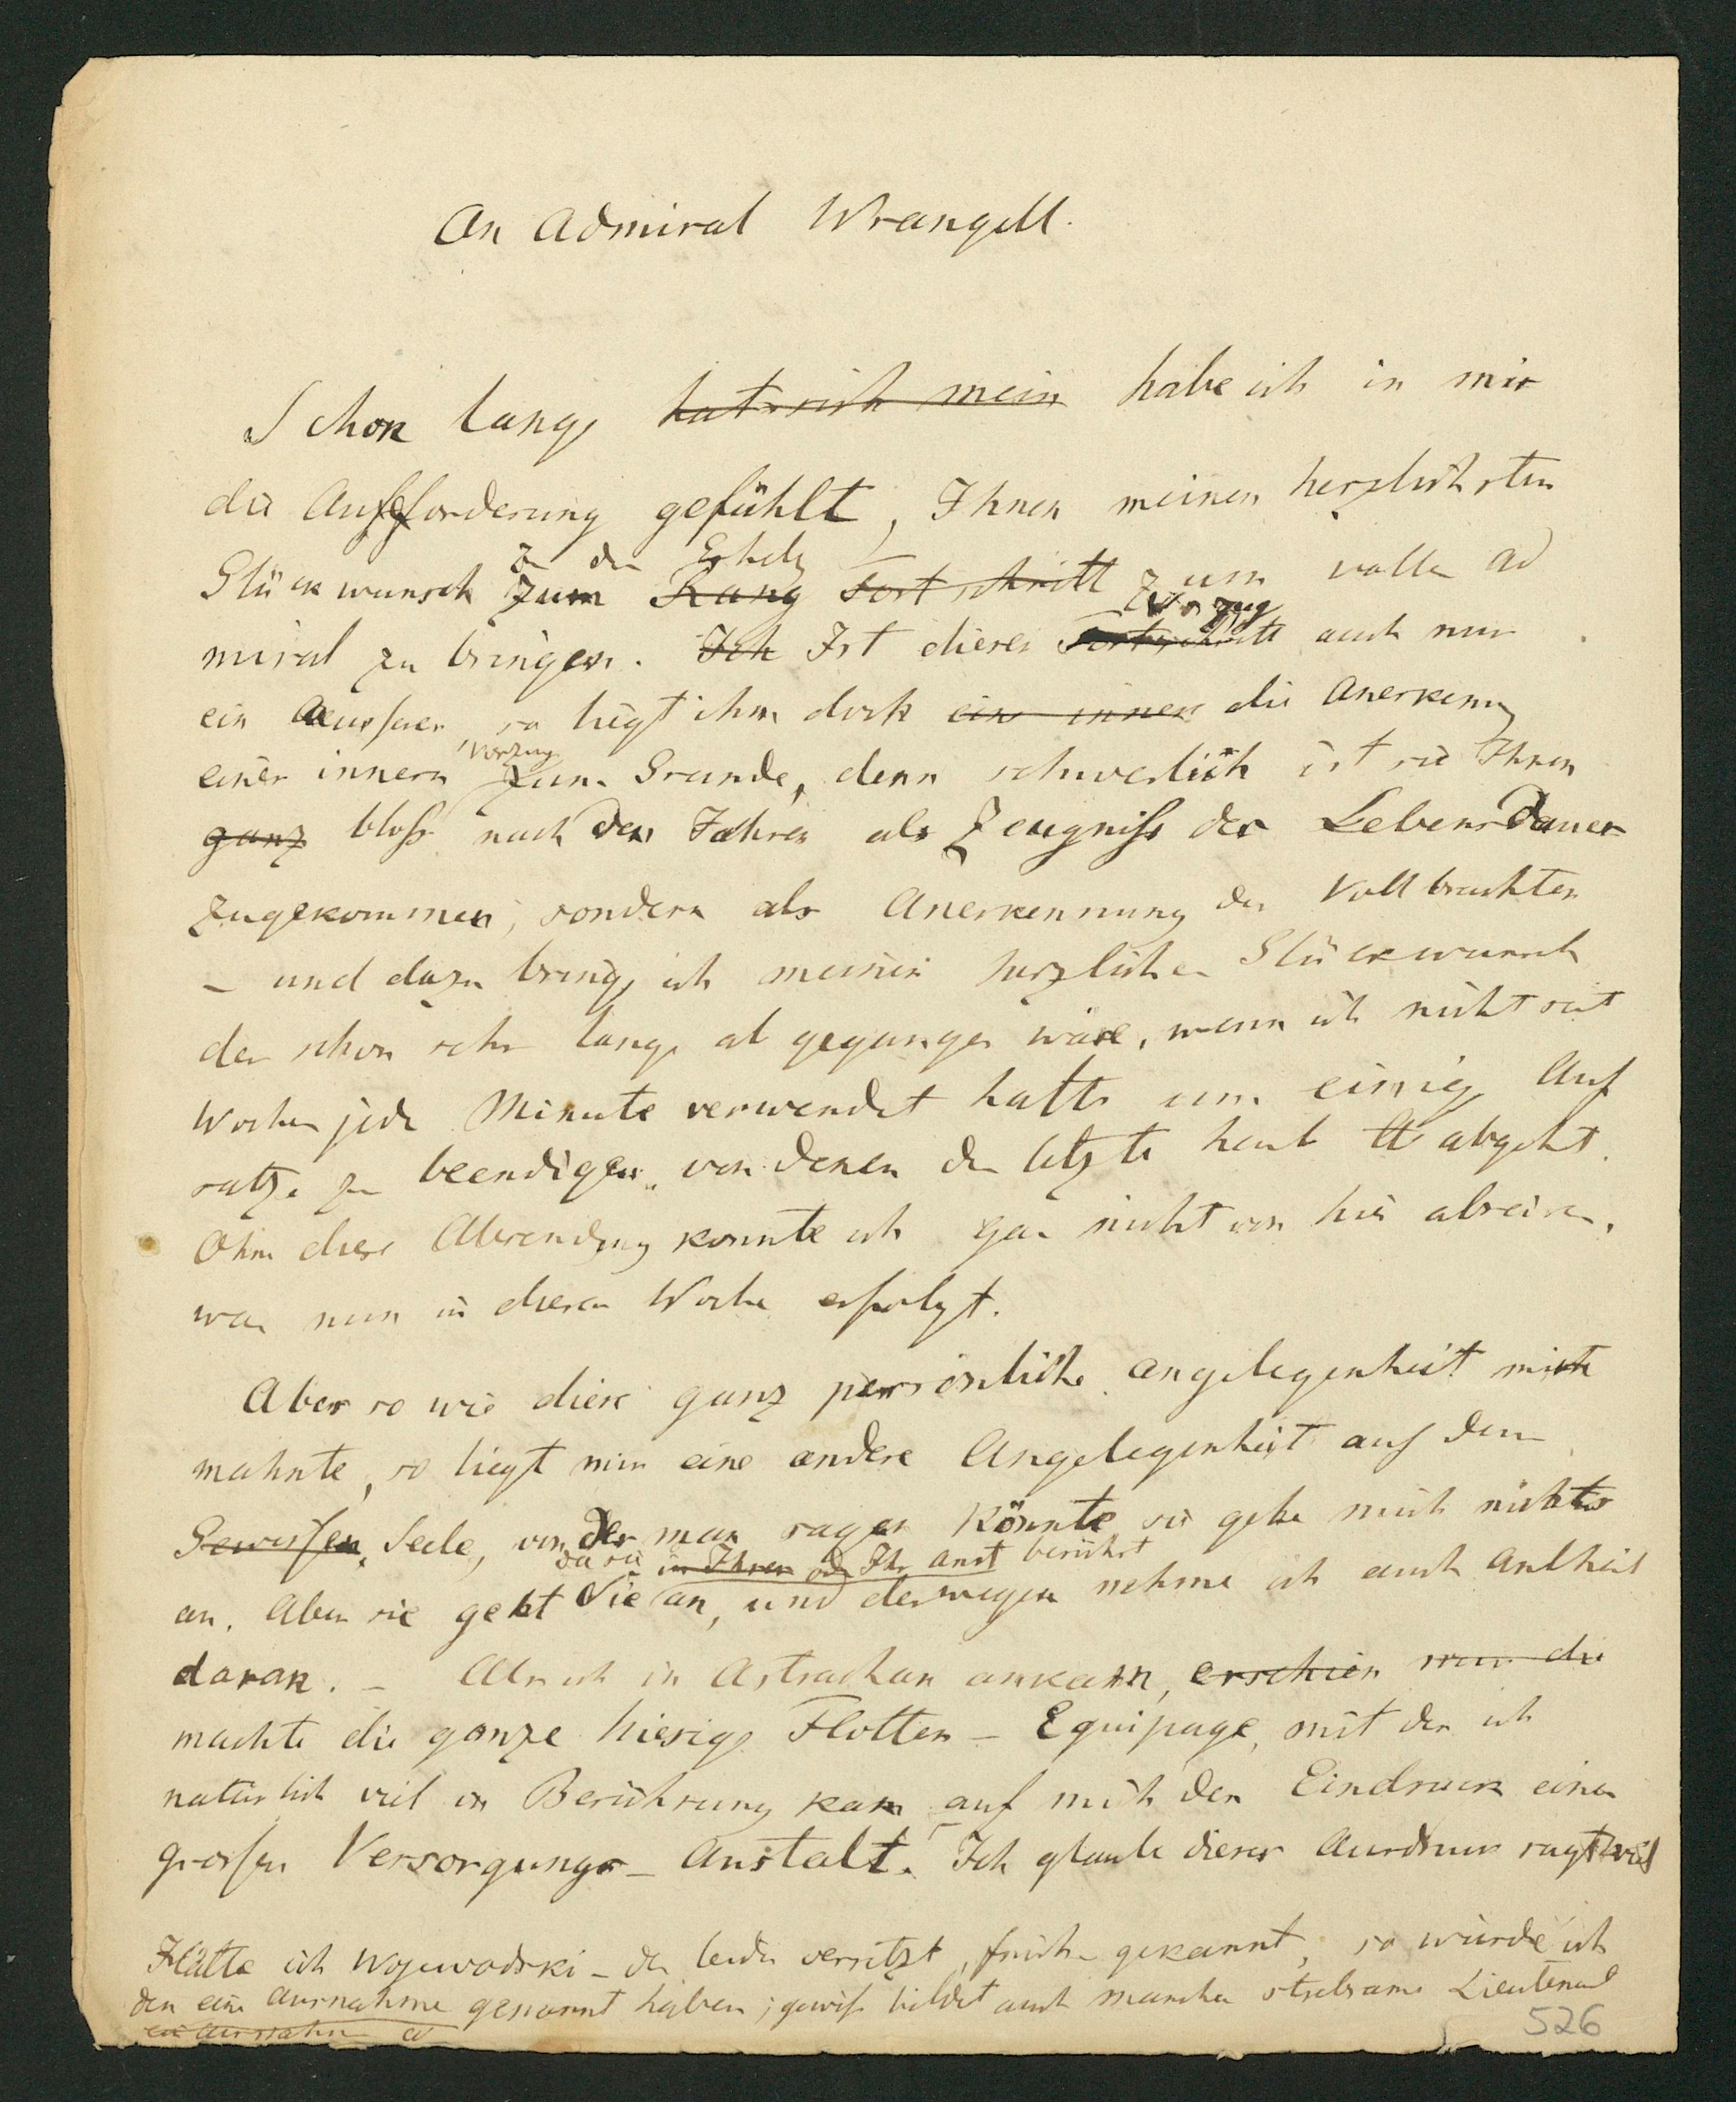 An Admiral Wrangell.
Schon lange hat sich mein habe ich in mir
die Aufforderung gefühlt, Ihnen meinen herzlichsten
zu der Erhebg
Glückwunsch zum Rang Fortschritt zum vollen Ad
Vorzug
miral zu bringen. Ich Ist dieser Fortschritt auch nur
ein Aeusserer so liegt ihm doch ein innerer die Anerkenng
Vorzugs
eines innern zum Grunde, denn schwerlich ist sie Ihnen
ganz bloss nach den Jahren als Zeugniss der Lebensdauer
zugekommen, sondern als Anerkennung des Vollbrachten
– und dazu bringe ich meinen herzlichen Glückwunsch
der schon sehr lange abgegangen wäre, wenn ich nicht seit
Wochen jede Minute verwendet hatte um einige Auf
satze zu beendigen, von denen der letzte heute abgeht.
Ohne diese Absendung konnte ich gar nicht von hier abreisen,
was nun in dieser Woche erfolgt.
Aber so wie diese ganz persönliche Angelegenheit mich
mahnte, so liegt mir eine andere Angelegenheit auf dem
Gewissen, Seele, von der man sagen könnte sie gehe mich nichts
da sie in Ihren oder Ihr Amt berührt
an. Aber sie geht Sie an, und deswegen nehme ich auch Antheil
daran. – Als ich in Astrachan ankam, erschien mir die
machte die ganze hiesige Flotten-Equipage, mit der ich
natürlich viel in Berührung kam auf mich den Eindruck einer
grossen Versorgungs-Anstalt. Ich glaube dieser Ausdruck sagt viel
Hätte ich Wojewodski – der leider versetzt, früher gekannt, so würde ich
den eine Ausnahme genannt haben; gewiss bildet auch mancher strebsame Lieutenant
eine Ausnahme
526